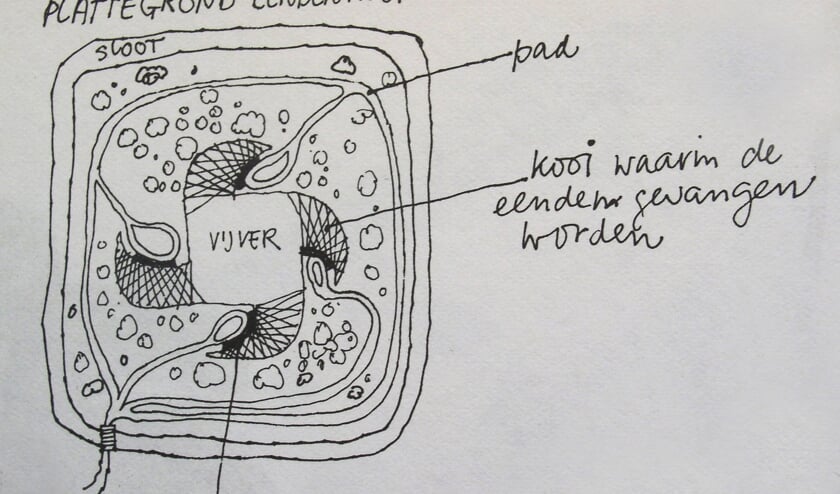 PLATTEGROND
SLOOT
pad
kooi waarin de
eenden gevangen
worden
VIJVER